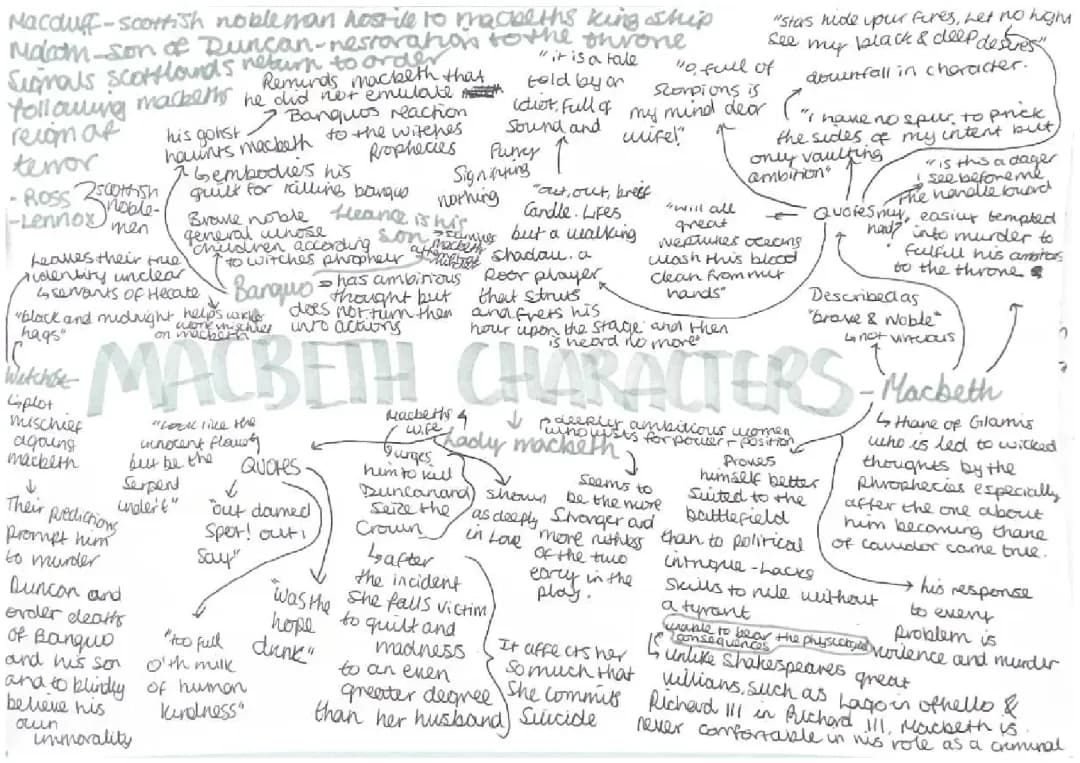 Macduff - scottish nobleman hostile to macbeths kingship
Malcom - son of Duncan - nesroration to the throne
Signals scottlands return to order
following macbeths
reign of
terror
- Ross
- Lennox
scottish
noble-
men
Reminds macbeth that
he did not emulate
Banquos reaction
to the witches
prophecies
his gohst
haunts macbeth
↳ embodies his
guilt for killing banquo
Brave noble
general whose
children according
to witches prophecy
fleance is his
son
Banquo
→ has ambitious
thought but
does not turn then
into actions
"it is a tale
told by an
idiot, full of
sound and
furry
Signifying
nothing
"out, out, brief
candle. Lifes
but a walking
shadow. a
Poor player
that struts
and frets his
hour upon the stage and then
is heard no more"
"O, full of
scorpions is
my mind dear
wife!"
"will all
great
neptunes oceans
wash this blood
clean from my
hands"
"stars hide your fires, Let no light
see my black & deep desires"
downfall in character.
"i have no spur, to prick
the sides of my intent but
only vaulting
ambition"
"is this a dager
i see before me
The handle toward
my
hand"
Quotes
easily tempted
into murder to
fulfull his
to the throne
Described as
"brave & Noble"
↳ not virtuous
Leaves their true
identity unclear
↳ servants of Hecate
"black and midnight
hags"
helps
on macbeth
MACBETH CHARACTERS
- Macbeth
↳ Thane of Glamis
who is led to wicked
thoughts by the
phrophecies especially
after the one about
him becoming thane
of cawdor came true.
→ his response
to every
problem is
violence and murder
Proves
himself better
suited to the
battlefield
than to political
intrigue - Lacks
skills to rule without
a tyrant
unable to bear the
consequences
↳ unlike Shakespeares great
villians, such as Lago in othello &
Richard III in Richard III, Macbeth is
never comfortable in his role as a criminal
Lady macbeth
deeply ambitious women
who lusts for power + position
Macbeths
wife
↳ urges
him to kill
Duncan and
seize the
Crown
↳ after
the incident
She falls victim
to guilt and
madness
to an even
greater degree
than her husband
It affects her
so much that
She commits
Suicide
Shown
as deeply
in Love
Seems to
be the more
Stronger and
more ruthless
of the two
early in the
play.
QUOTES
"Look like the
innocent flower
but be the
Serpent
under it"
"out damed
spot! out i
say"
"Was the
hope
drunk"
"too full
o'th milk
of human
kindness"
↳ plot
mischief
againg
macbeth
↓
Their predictions
prompt him
to murder
Duncan and
order deaths
of Banquo
and his son
and to blindly
believe his
own
immorality